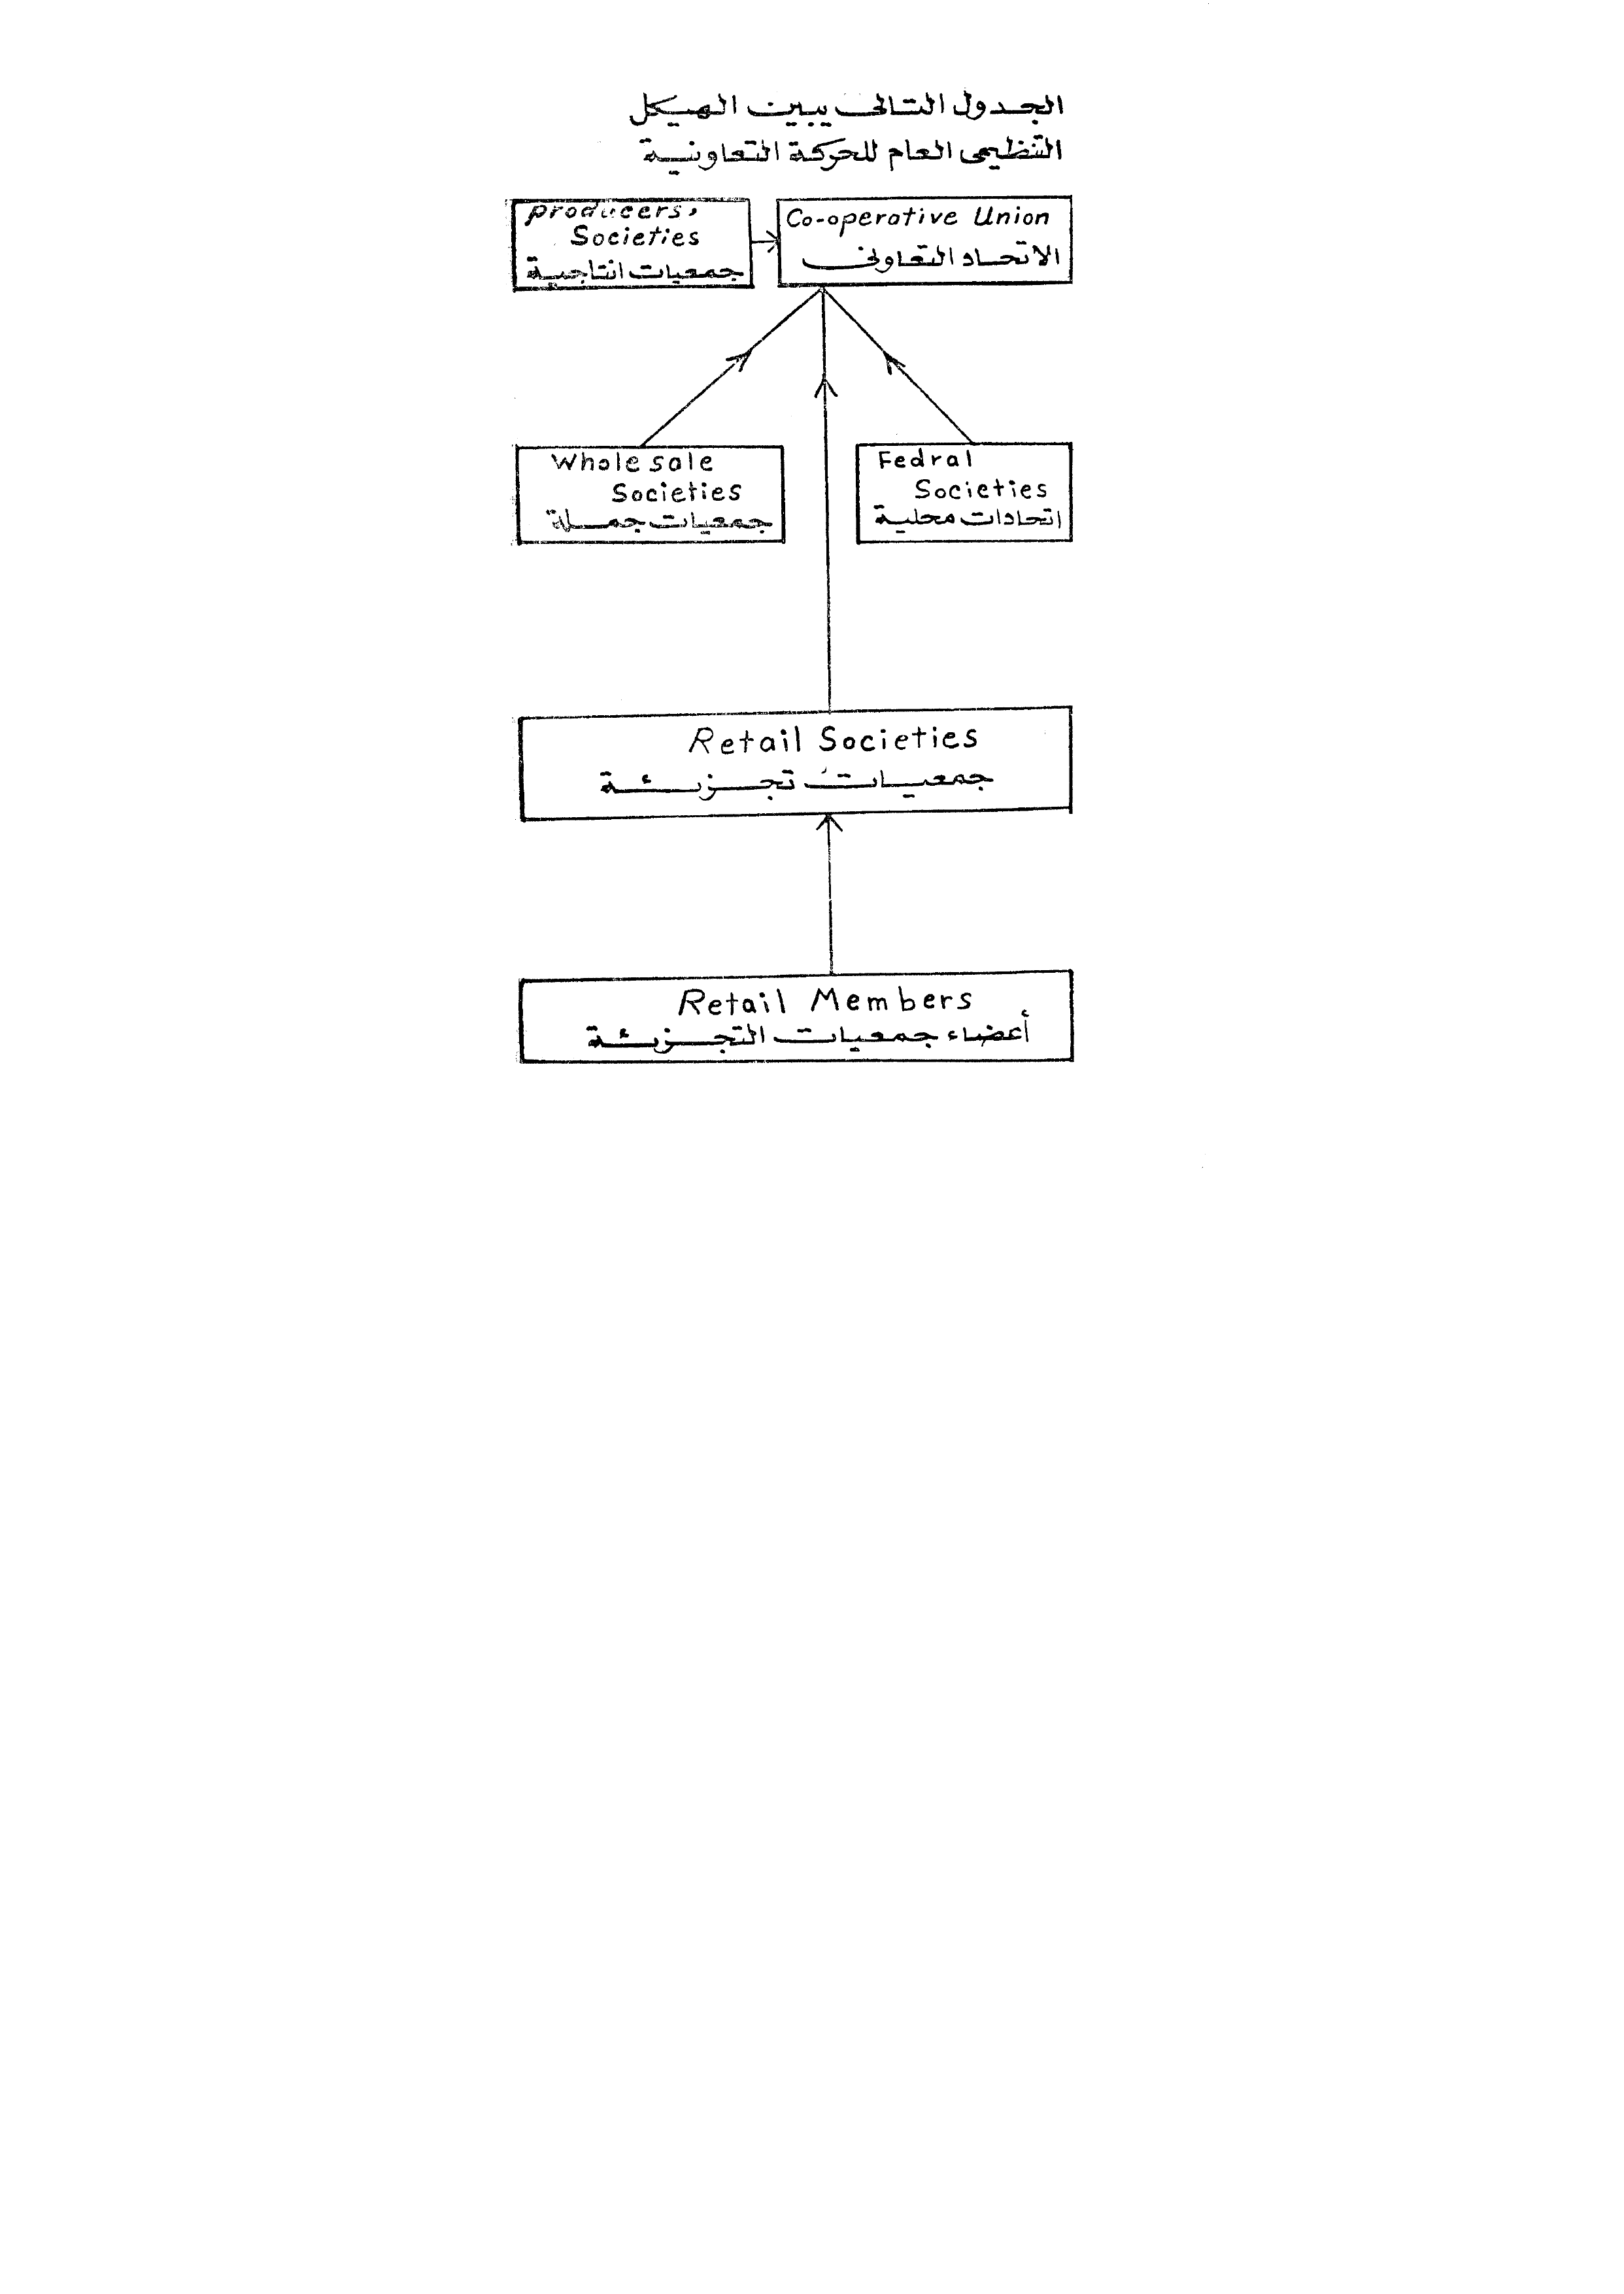 الجدول التالى يبين الهيكل
التنظيمى العام للحركة التعاونية
producers,
Societies
جمعيات انتاجية
Co-operative Union
الاتحاد التعاونى
Whole sale
Societies
جمعيات جملة
Fedral
Societies
اتحادات محلية
Retail Societies
جمعيات تجزئة
Retail Members
أعضاء جمعيات التجزئة